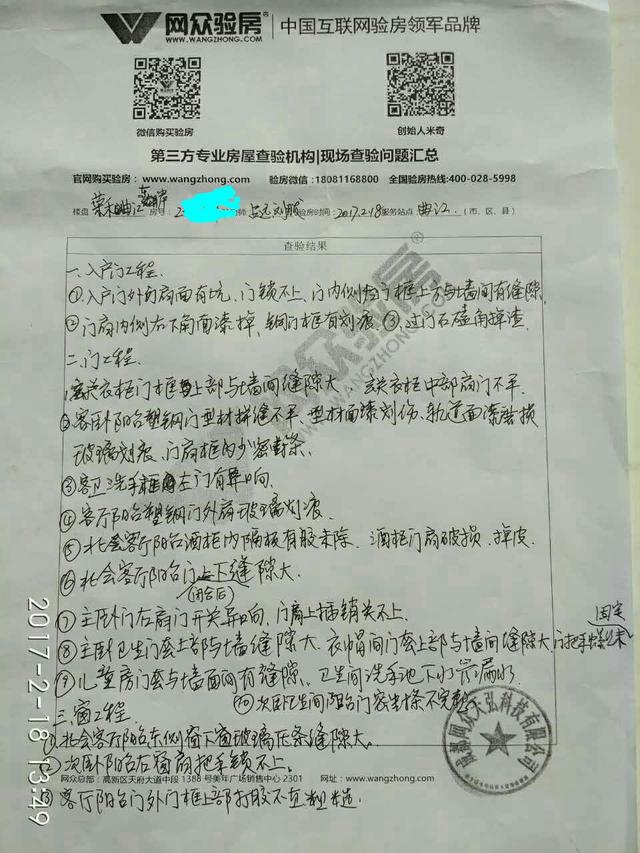 网众验房®
WWW.WANGZHONG.COM
中国互联网验房领军品牌
微信购买验房
创始人米奇
第三方专业房屋查验机构|现场查验问题汇总
官网购买验房：www.wangzhong.com 验房微信：18081168800 全国验房热线:400-028-5998
楼盘 荣和曲江 房号： 2- 验房时间：2017.2.18 服务站点：曲江.（市、区、县）
查验结果
一、入户门工程.
①入户门外门扇面有坑、门锁不上、门内侧 门框上方与墙间有缝隙
②门扇内侧右下角面漆掉、钢门框有划痕 ③、过门石磕角掉渣
二、门工程.
玄关衣柜门框上部与墙间缝隙大 玄关衣柜中部扇门不平.
②客卧阳台塑钢门型材拼缝不平、型材面漆划伤、轨道面漆磨损
玻璃划痕、门扇框内少密封条
③客卫洗手柜左门有异响.
④客厅阳台塑钢门外扇玻璃划痕
⑤北会客厅阳台酒柜内隔板有胶未除、酒柜门扇破损、掉皮
⑥北会客厅阳台门上下缝隙大.
(闭合后)
⑦主卧门右扇门开关异响，门扇上插销关不上.
固定
⑧主卧卫生门套上部与墙缝隙大、衣帽间门套上部与墙间缝隙大、门把手
⑨儿童房门套与墙面间有缝隙.、卫生间洗手池下水 漏水
⑩次卧卫生间阳台门密封条不完整
三、窗工程.
①北会客厅阳台东侧窗下窗玻璃压条缝隙大.
②次卧阳台右窗扇把手锁不上.
网众总部：高新区天府大道中段1388号美年广场销售中心2301 网址：www.wangzhong.com
③客厅阳台门外门框上部打胶不
成都网众天弘科技有限公司
网众验房®
WWW.WANGZHONG.COM
2017-2-18 13:49